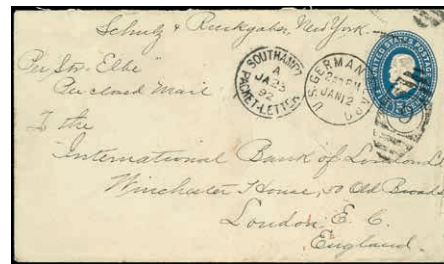 Schulz & Ruckgaber, New York
Per Str. "Elbe"
Per closed Mail
SOUTHAMPT
A
JA 23
92
PACKET-LETTER
U.S. GERMAN
JAN 12
UNITED STATES POSTAGE
To the
International Bank of London Ld
Winchester House, 50 Old Broad
London E. C.
England.